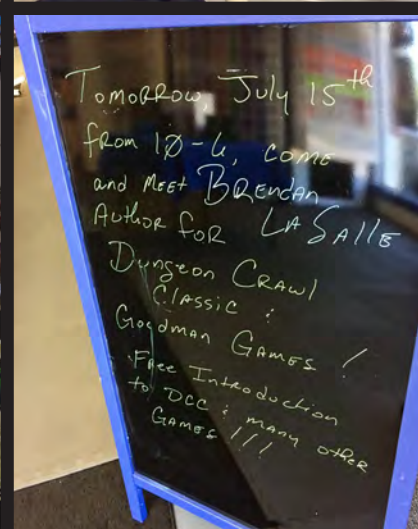 Tomorrow, July 15th
from 10-6, come
and meet Brendan
LaSalle
Author for
Dungeon Crawl
Classic &
Goodman Games!
Free Introduction
to DCC & many other
Games!!!